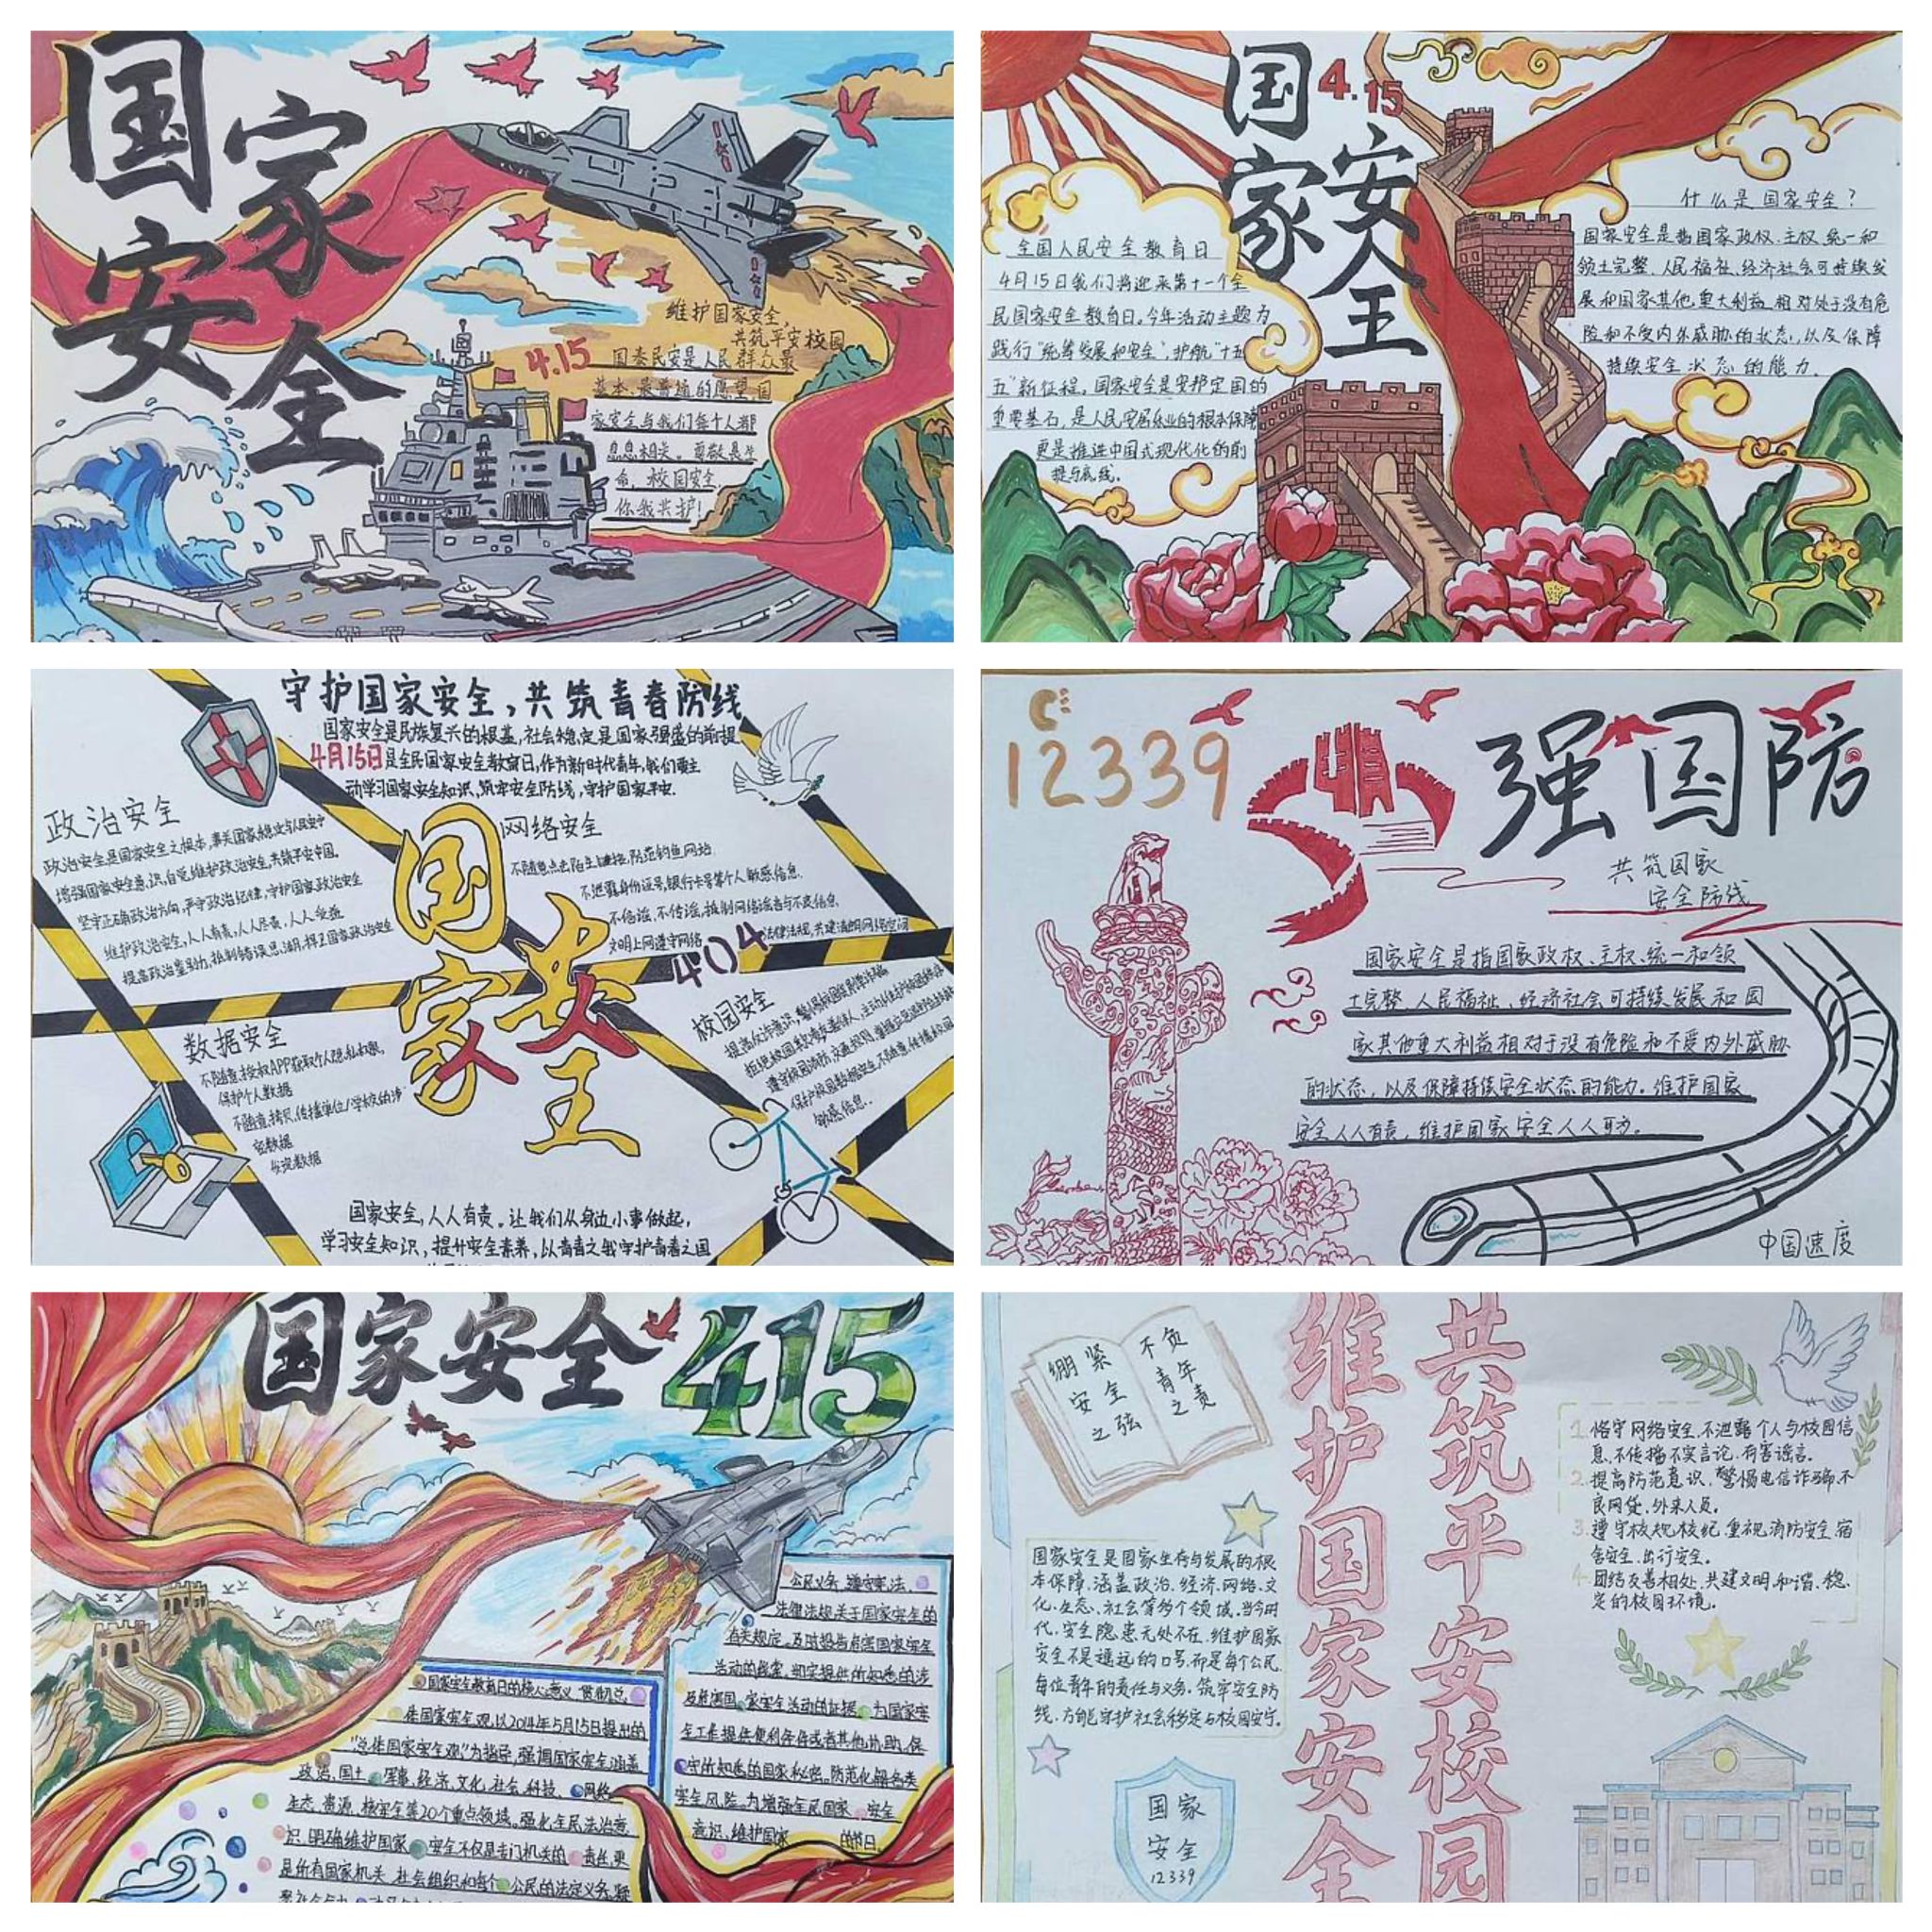 国家
安全
维护国家安全,
共筑平安校园
4.15
国泰民安是人民群众最
基本、最普遍的愿望,国
家安全与我们每个人都
息息相关。尊敬是生
命,校园安全,
你我共护!
国家安全
4.15
全国人民安全教育日
4月15日我们将迎来第十一个全
民国家安全教育日。今年活动主题为
践行“统筹发展和安全,护航“十五
五”新征程。国家安全是安邦定国的
重要基石,是人民安居乐业的根本保障
更是推进中国式现代化的前
提与底线。
什么是国家安全?
国家安全是指国家政权、主权、统一和
领土完整、人民福祉、经济社会可持续发
展和国家其他重大利益相对处于没有危
险和不受内外威胁的状态,以及保障
持续安全状态的能力。
守护国家安全,共筑青春防线
国家安全是民族复兴的根基,社会稳定是国家强盛的前提
4月15日是全民国家安全教育日,作为新时代青年,我们要主
动学习国家安全知识,筑牢安全防线,守护国家平安.
政治安全
政治安全是国家安全之根本,事关国家稳定与人民安宁
增强国家安全意识,自觉维护政治安全,共筑平安中国.
坚守正确政治方向,严守政治纪律,守护国家政治安全
维护政治安全,人人有责,人人尽责,人人受益
提高政治鉴别力,抵制错误思潮,捍卫国家政治安全
网络安全
不随意点击陌生链接,防范钓鱼网站.
不泄露身份证号,银行卡号等个人敏感信息.
不信谣,不传谣,抵制网络谣言与不良信息
文明上网遵守网络法律法规,共建清朗网络空间
404
国家安全
数据安全
不随意授权APP获取个人隐私权限,
保护个人数据
不随意拷贝,传播单位/学校的涉
密数据
校园安全
提高反诈意识,
遵守校园消防,交通规则,
敏感信息..
国家安全,人人有责。让我们从身边小事做起,
学习安全知识,提升安全素养,以青春之我守护青春之国
12339
强国防
共筑国家
安全防线
国家安全是指国家政权、主权、统一和领
土完整、人民福祉、经济社会可持续发展和国
家其他重大利益相对于没有危险和不受内外威胁
的状态,以及保障持续安全状态的能力。维护国家
安全人人有责,维护国家安全人人可为。
中国速度
国家安全
415
公民义务:遵守宪法、
法律法规关于国家安全的
有关规定。及时报告危害国家安全
活动的线索,如实提供所知悉的涉
及危害国家安全活动的证据。为国家安
全工作提供便利条件或者其他协助。保
守所知悉的国家秘密。防范化解各类
安全风险,为增强全民国家安全
意识,维护国家的节日
国家安全教育日的核心意义:贯彻总
体国家安全观,以2014年5月15日提出的
“总体国家安全观”为指导,强调国家安全涵盖
政治、国土、军事、经济、文化、社会、科技、网络
生态、资源、核安全等20个重点领域。强化全民法治意
识,明确维护国家安全不仅是专门机关的责任,更
是所有国家机关、社会组织和每个公民的法定义务,凝
绷紧
安全
之弦
不负
青年
之责
维护国家安全
共筑平安校园
国家安全是国家生存与发展的根
本保障.涵盖政治.经济.网络.文
化.生态、社会等多个领域.当今时
代,安全隐患无处不在.维护国家
安全不是遥远的口号,而是每个公民.
每位青年的责任与义务.筑牢安全防
线,方能守护社会稳定与校园安宁.
国家
安全
12339
1.恪守网络安全,不泄露个人与校园信
息,不传播不实言论,有害谣言.
2.提高防范意识,警惕电信诈骗,不
良网贷,外来人员.
3.遵守校规校纪,重视消防安全,宿
舍安全,出行安全.
4.团结友善相处,共建文明,和谐、稳
定的校园环境.